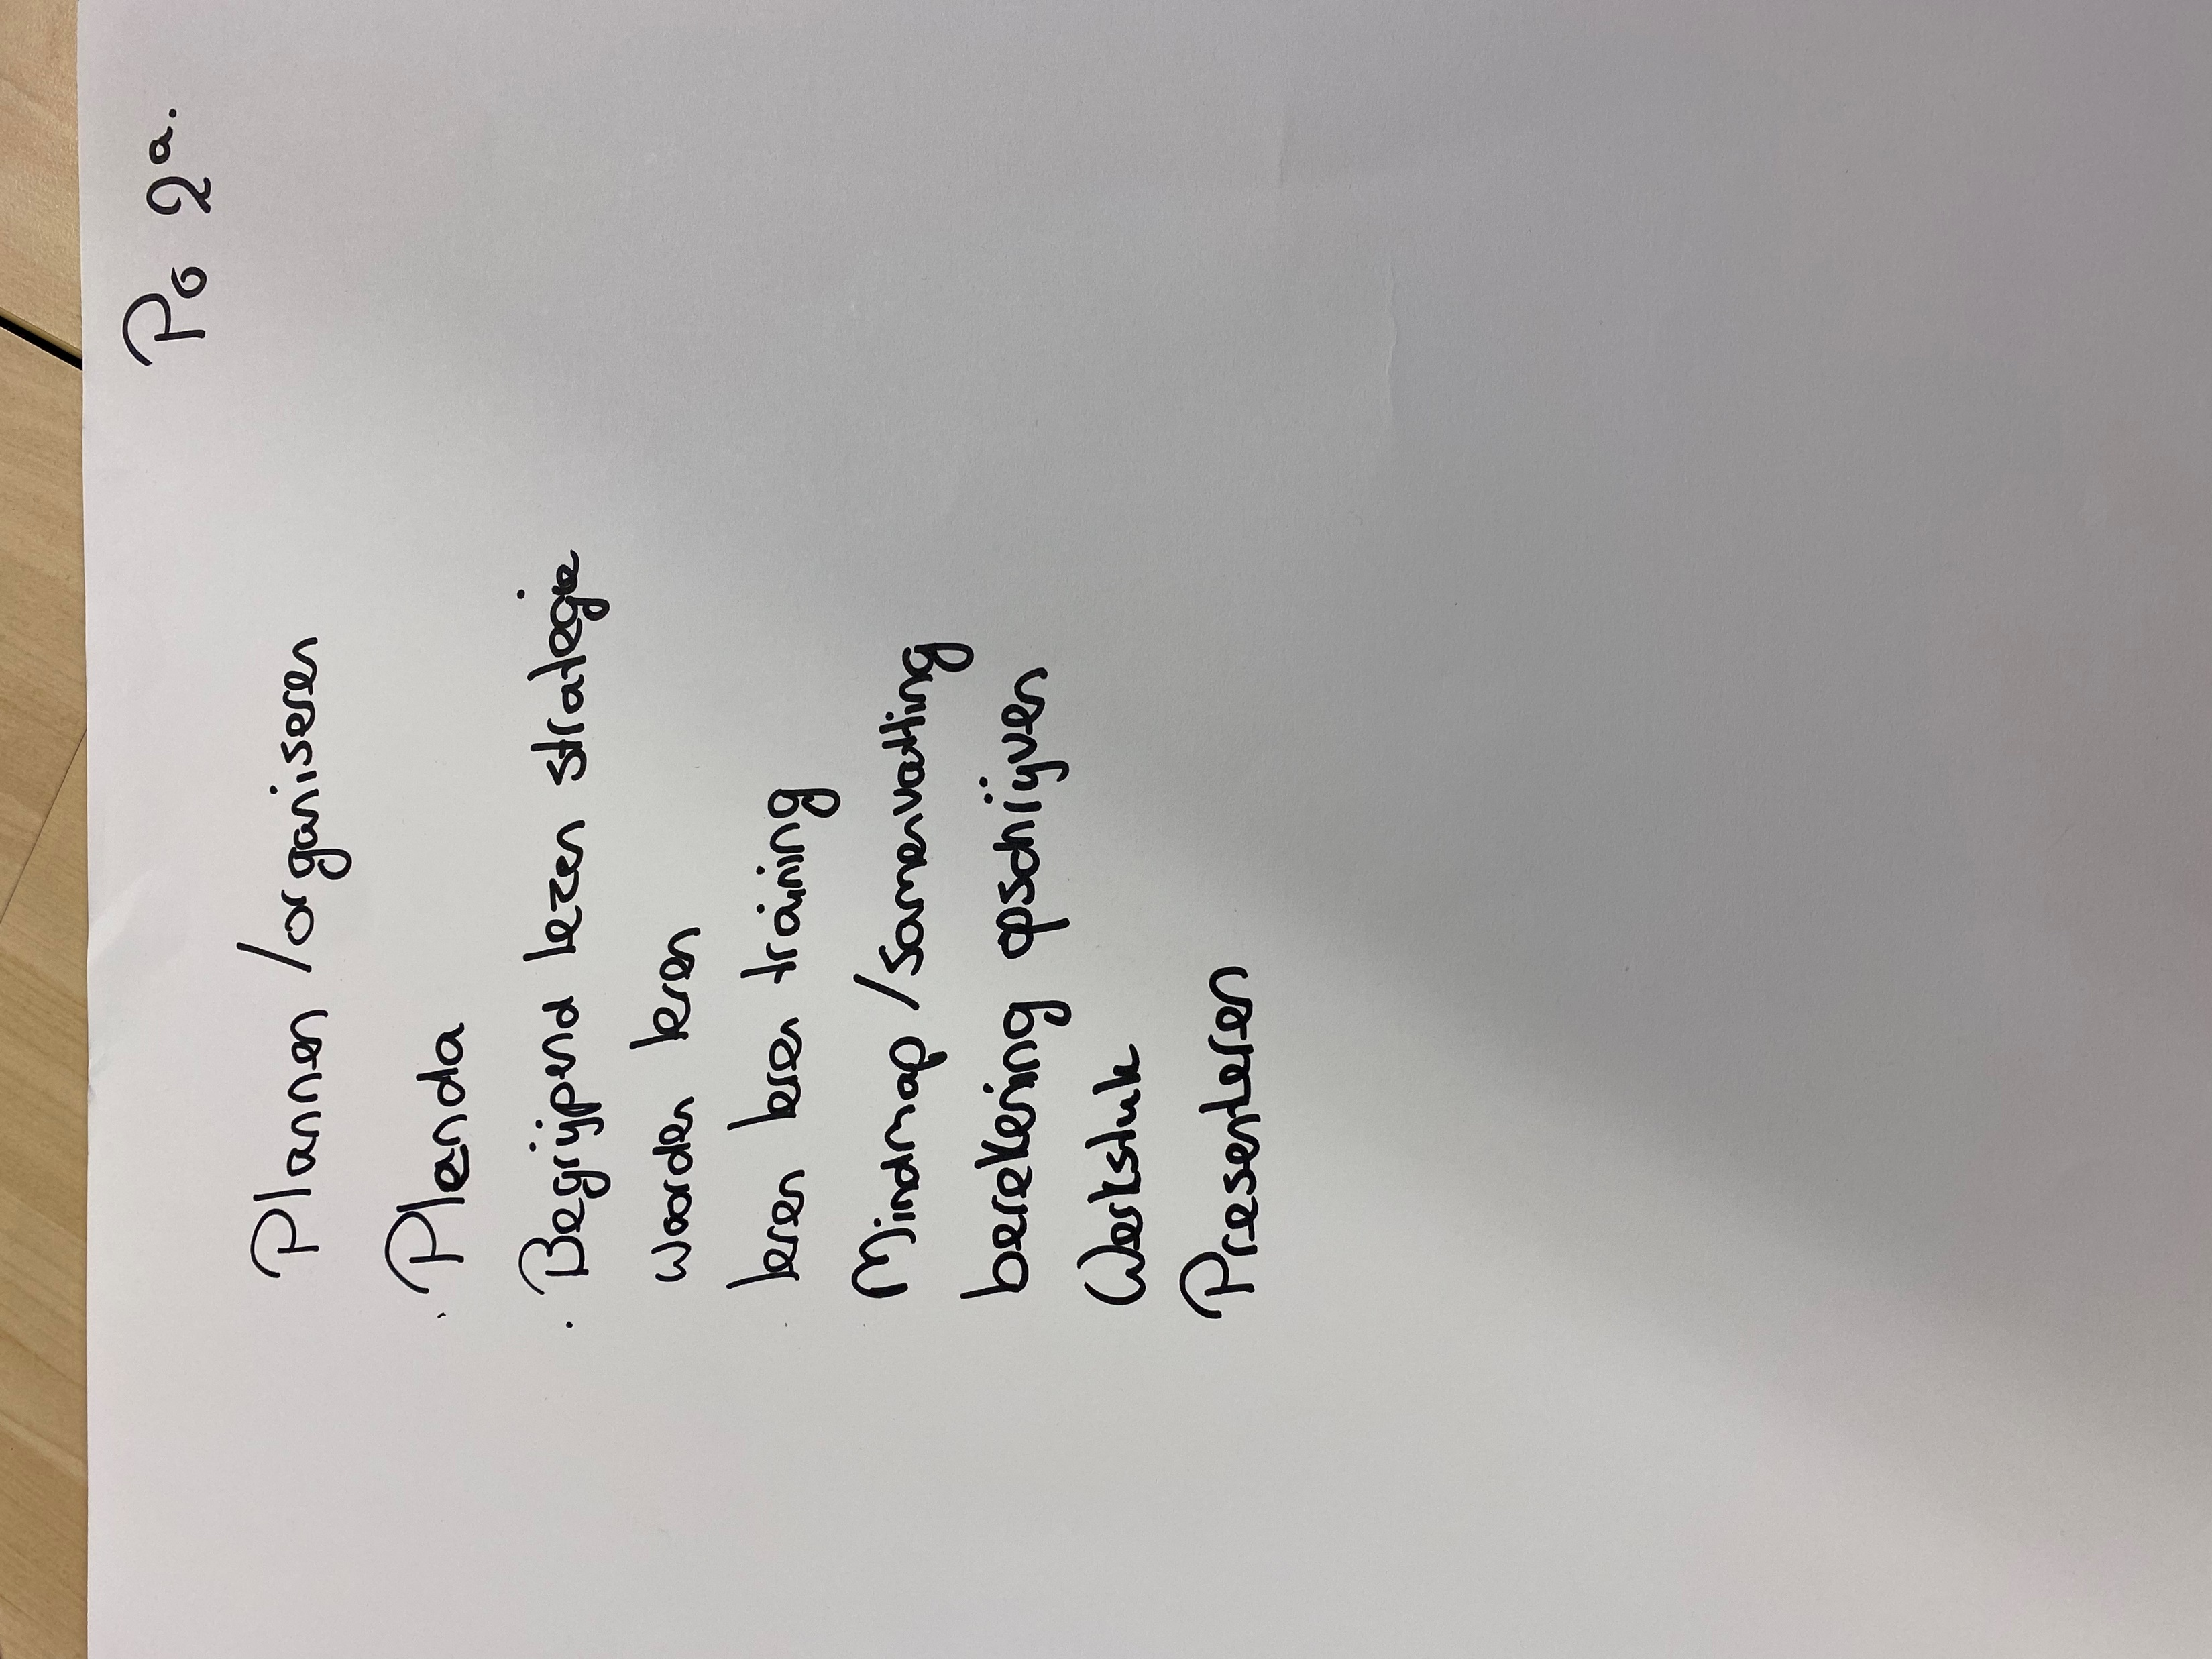 Po 2a.
Plannen / organiseren
· Plenda
· Begrijpend lezen strategie
woorden leren
leren leren training
Mindmap / samenvatting
berekening opschrijven
Werkstuk
Presenteren